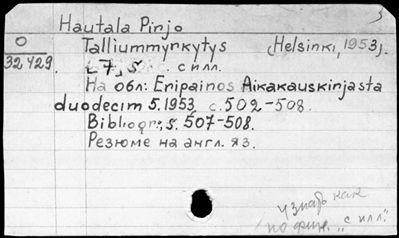 Hautala Pirjo
О
32429.
Talliummyrkytys (Helsinki, 1953).
с илл.
На обл: Eripainos Aikakauskirjasta
duodecim 5.1953 с. 502-508.
Bibliogr.; s. 507-508.
Резюме на англ. яз.
узнать как
по фин. "с илл."